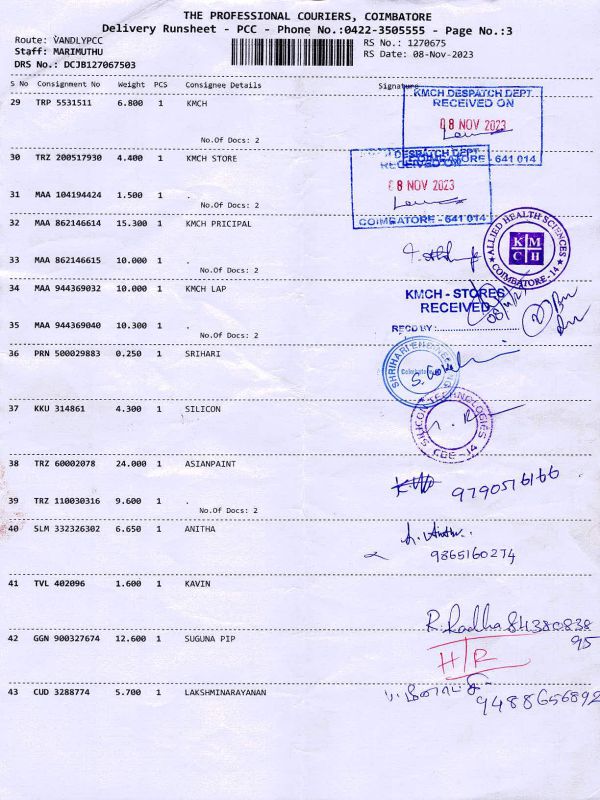 THE PROFESSIONAL COURIERS, COIMBATORE
Delivery Runsheet - PCC - Phone No.:0422-3505555 - Page No.:3
Route: VANDLYPCC
RS No.: 1270675
Staff: MARIMUTHU
RS Date: 08-Nov-2023
DRS No.: DCJB127067503
S No Consignment No Weight PCS Consignee Details Signature
KMCH DESPATCH DEPT
29 TRP 5531511 6.800 1 KMCH RECEIVED ON
08 NOV 2023
No.Of Docs: 2
COIMBATORE - 641 014
KMCH DESPATCH DEPT
30 TRZ 200517930 4.400 1 KMCH STORE
RECEIVED ON
08 NOV 2023
31 MAA 104194424 1.500 1 .
No.Of Docs: 2
COIMBATORE - 641 014
32 MAA 862146614 15.300 1 KMCH PRICIPAL
ALLIED HEALTH SCIENCES
KMCH
COIMBATORE - 14
33 MAA 862146615 10.000 1 .
No.Of Docs: 2
34 MAA 944369032 10.000 1 KMCH LAP
KMCH - STORES
RECEIVED
35 MAA 944369040 10.300 1 .
RECD BY:
No.Of Docs: 2
36 PRN 500029883 0.250 1 SRIHARI
SHRIHARI ENGINEERING
Coimbatore
37 KKU 314861 4.300 1 SILICON
SILICON TECHNOLOGIES
CBE - 14
38 TRZ 60002078 24.000 1 ASIANPAINT
9790516166
39 TRZ 110030316 9.600 1 .
No.Of Docs: 2
40 SLM 332326302 6.650 1 ANITHA
9865160274
41 TVL 402096 1.600 1 KAVIN
R. Radha 84380838
95
42 GGN 900327674 12.600 1 SUGUNA PIP
H/R
43 CUD 3288774 5.700 1 LAKSHMINARAYANAN
9488656892